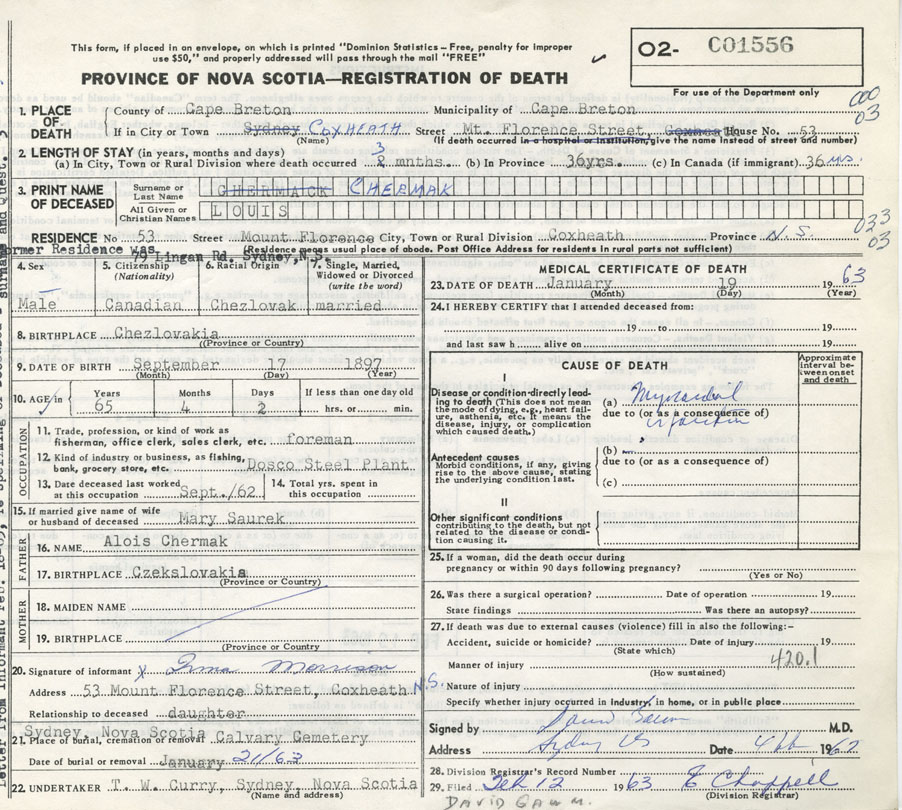 This form, if placed in an envelope, on which is printed "Dominion Statistics – Free, penalty for improper
use $50," and properly addressed will pass through the mail "FREE"
O2- C01556
PROVINCE OF NOVA SCOTIA—REGISTRATION OF DEATH
For use of the Department only
000
03
1. PLACE OF DEATH
County of Cape Breton Municipality of Cape Breton
If in City or Town Sydney COXHEATH Street Mt. Florence Street, House No. 53
(Name) (If death occurred in a hospital or institution, give the name instead of street and number)
2. LENGTH OF STAY (in years, months and days)
3
(a) In City, Town or Rural Division where death occurred 2 mnths. (b) In Province 36yrs. (c) In Canada (if immigrant) 36 yrs.
3. PRINT NAME OF DECEASED
Surname or Last Name CHERMACK CHERMAK
All Given or Christian Names LOUIS
033
03
RESIDENCE No 53 Street Mount Florence City, Town or Rural Division Coxheath Province N.S.
(Residence means usual place of abode. Post Office Address for residents in rural parts not sufficient)
ormer Residence was 79 Lingan Rd. Sydney, N.S.
4. Sex
Male
5. Citizenship
(Nationality)
Canadian
6. Racial Origin
Chezlovak
7. Single, Married, Widowed or Divorced
(write the word)
married
8. BIRTHPLACE Chezlovakia
(Province or Country)
9. DATE OF BIRTH September 17 1897
(Month) (Day) (Year)
10. AGE in
Years Months Days If less than one day old
65 4 2 hrs. or min.
OCCUPATION
11. Trade, profession, or kind of work as
fisherman, office clerk, sales clerk, etc. foreman
12. Kind of industry or business, as fishing,
bank, grocery store, etc. Dosco Steel Plant
13. Date deceased last worked
at this occupation Sept./62
14. Total yrs. spent in
this occupation
15. If married give name of wife
or husband of deceased Mary Saurek
FATHER
16. NAME Alois Chermak
17. BIRTHPLACE Czekslovakia
(Province or Country)
MOTHER
18. MAIDEN NAME
19. BIRTHPLACE
(Province or Country)
20. Signature of informant x Irma Morrison
Address 53 Mount Florence Street, Coxheath N.S.
Relationship to deceased daughter
Sydney, Nova Scotia
21. Place of burial, cremation or removal Calvary Cemetery
Date of burial or removal January 21/63
22. UNDERTAKER T. W. Curry, Sydney, Nova Scotia
(Name and address)
MEDICAL CERTIFICATE OF DEATH
23. DATE OF DEATH January 19 1963
(Month) (Day) (Year)
24. I HEREBY CERTIFY that I attended deceased from:
19 to 19
and last saw h alive on 19
CAUSE OF DEATH
Approximate interval between onset and death
I
Disease or condition directly leading to death (This does not mean
the mode of dying, e.g., heart failure, asthenia, etc. It means the
disease, injury, or complication
which caused death.)
(a) Myocardial
due to (or as a consequence of)
infarction
Antecedent causes
Morbid conditions, if any, giving
rise to the above cause, stating
the underlying condition last.
(b)
due to (or as a consequence of)
(c)
II
Other significant conditions
contributing to the death, but not
related to the disease or condition causing it.
25. If a woman, did the death occur during
pregnancy or within 90 days following pregnancy?
(Yes or No)
26. Was there a surgical operation? Date of operation 19
State findings Was there an autopsy?
27. If death was due to external causes (violence) fill in also the following:–
Accident, suicide or homicide? Date of injury 19
(State which)
420.1
Manner of injury
(How sustained)
Nature of injury
Specify whether injury occurred in industry, in home, or in public place
Signed by M.D.
Address Sydney NS Date 4 Feb 19
28. Division Registrar's Record Number
29. Filed Feb 12 1963 E Chappell
(Division Registrar)
DAVID GAUM.